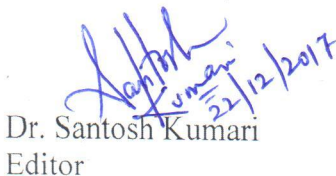 Santosh
Kumari
22/12/2017
Dr. Santosh Kumari
Editor